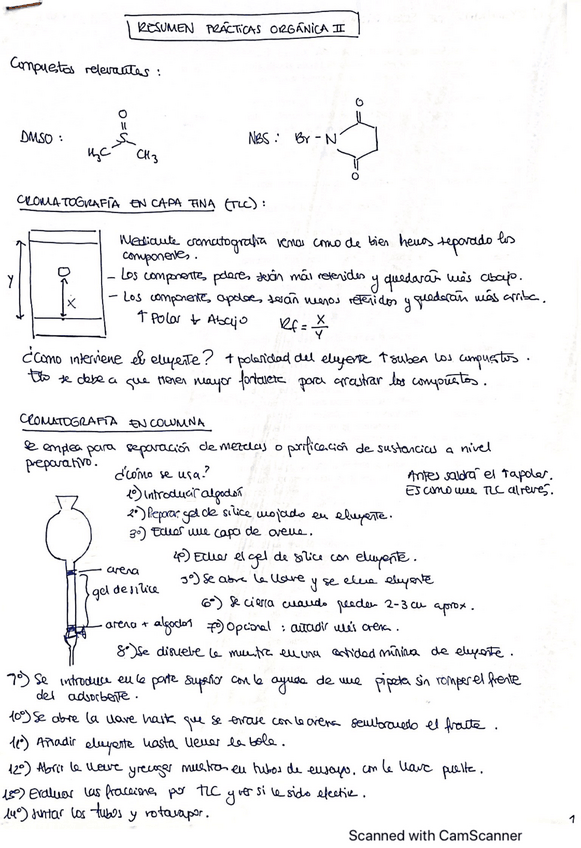 RESUMEN PRÁCTICAS ORGÁNICA II
Compuestos relevantes :
DMSO :
O
S
H₃C
CH₃
NBS :
Br - N
O
O
CROMATOGRAFÍA EN CAPA FINA (TLC) :
Mediante cromatografía vemos como de bien hemos separado los
componentes.
- Los componentes polares serán más retenidos y quedarán más abajo.
- Los componentes apolares serán menos retenidos y quedarán más arriba.
↑ Polar ↓ Abajo
Rf = X/Y
Y
X
¿Como interviene el eluyente? ↑ polaridad del eluyente ↑ suben los compuestos.
Esto se debe a que tienen mayor fortaleza para arrastrar los compuestos.
CROMATOGRAFÍA EN COLUMNA
Se emplea para separación de mezclas o purificación de sustancias a nivel
preparativo.
¿Cómo se usa?
Antes saldrá el ↑ apolar.
Es como una TLC al revés.
1º) Introducir algodón
2º) Preparar gel de sílice mojado en eluyente.
3º) Echar una capa de arena.
4º) Echar el gel de sílice con eluyente.
5º) Se abre la llave y se eluye eluyente
6º) Se cierra cuando queden 2-3 cm aprox.
arena
gel de sílice
arena + algodón
7º) Opcional : añadir más arena.
8º) Se disuelve la muestra en una cantidad mínima de eluyente.
7º) Se introduce en la parte superior con la ayuda de una pipeta sin romper el frente
del adsorbente.
10º) Se abre la llave hasta que se enrase con la arena sembrando el frasco.
11º) Añadir eluyente hasta llenar la bola.
12º) Abrir la llave y recoger muestra en tubos de ensayo, con la llave
13º) Evaluar las fracciones por TLC y ver si ha sido efectiva.
14º) Juntar los tubos y rotavapor.
1
Scanned with CamScanner